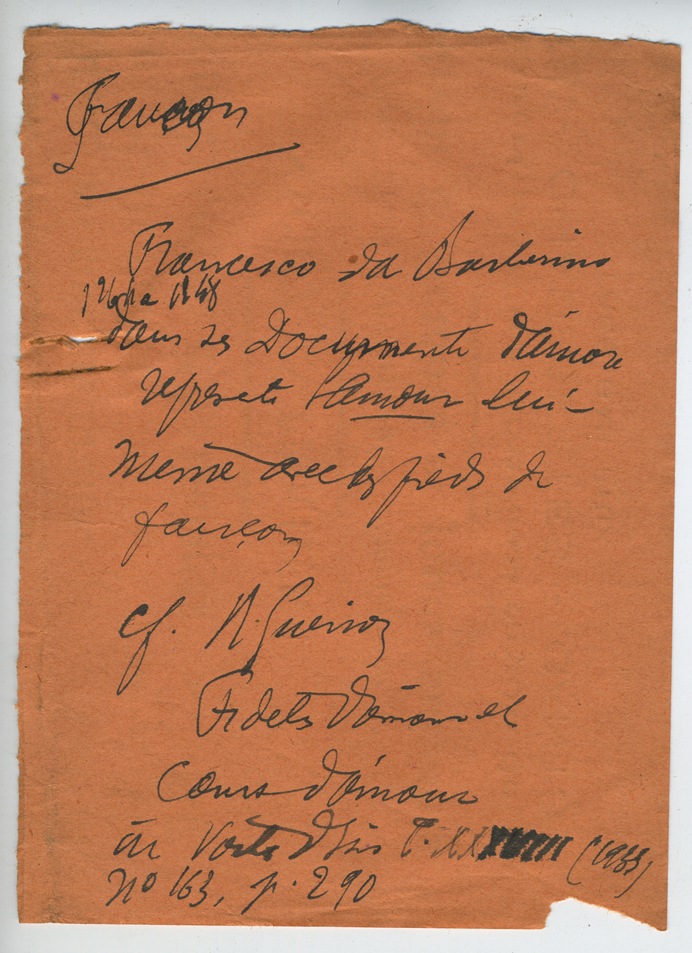 faucon
Francesco da Barberino
1264 a 1348
dans ses Documenti d'amore
represente l'amour lui-
même avec les pieds de
faucon
cf. R. Guénon
Fidèles d'amour et
Cours d'amour
in Voile d'Isis t. XXXVIII (1933)
no 163, p. 290